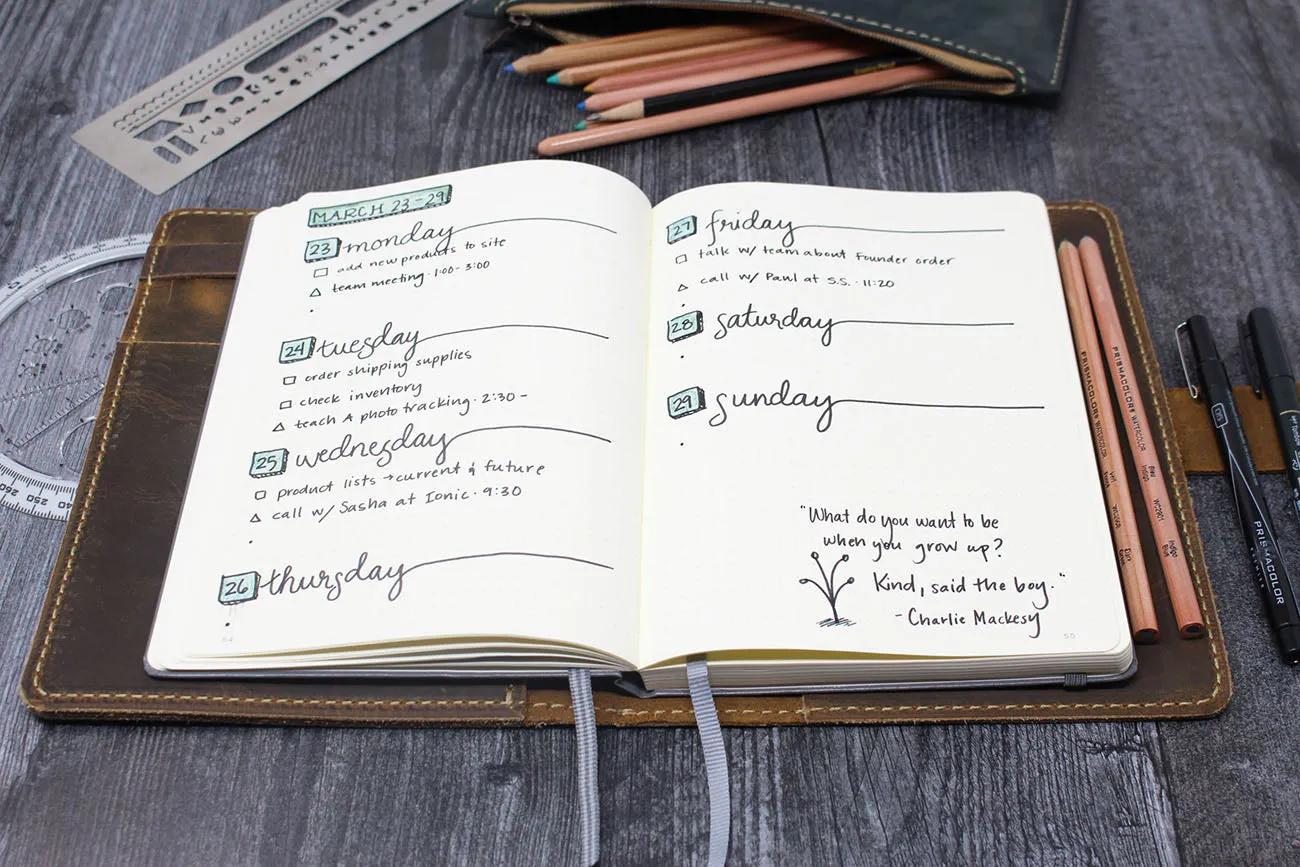 MARCH 23-29
23 monday
add new products to site
team meeting · 1:00 - 3:00
24 tuesday
order shipping supplies
check inventory
teach A photo tracking · 2:30 -
25 wednesday
product lists → current & future
call w/ Sasha at Ionic · 9:30
26 thursday
54
27 friday
talk w/ team about Founder order
call w/ Paul at S.S. · 11:20
28 saturday
29 sunday
"What do you want to be
when you grow up?
Kind, said the boy."
- Charlie Mackesy
55
PRISMACOLOR WATERCOLOR
PRISMACOLOR WATERCOLOR
WC2901
Indigo Blue
05
PRISMACOLOR
240
250
260